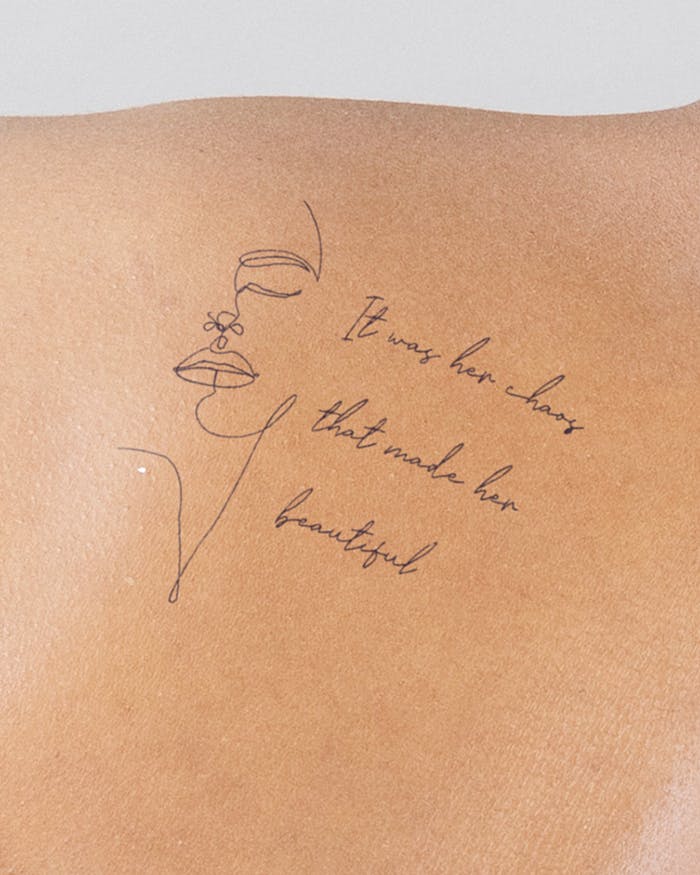 It was her chaos
that made her
beautiful